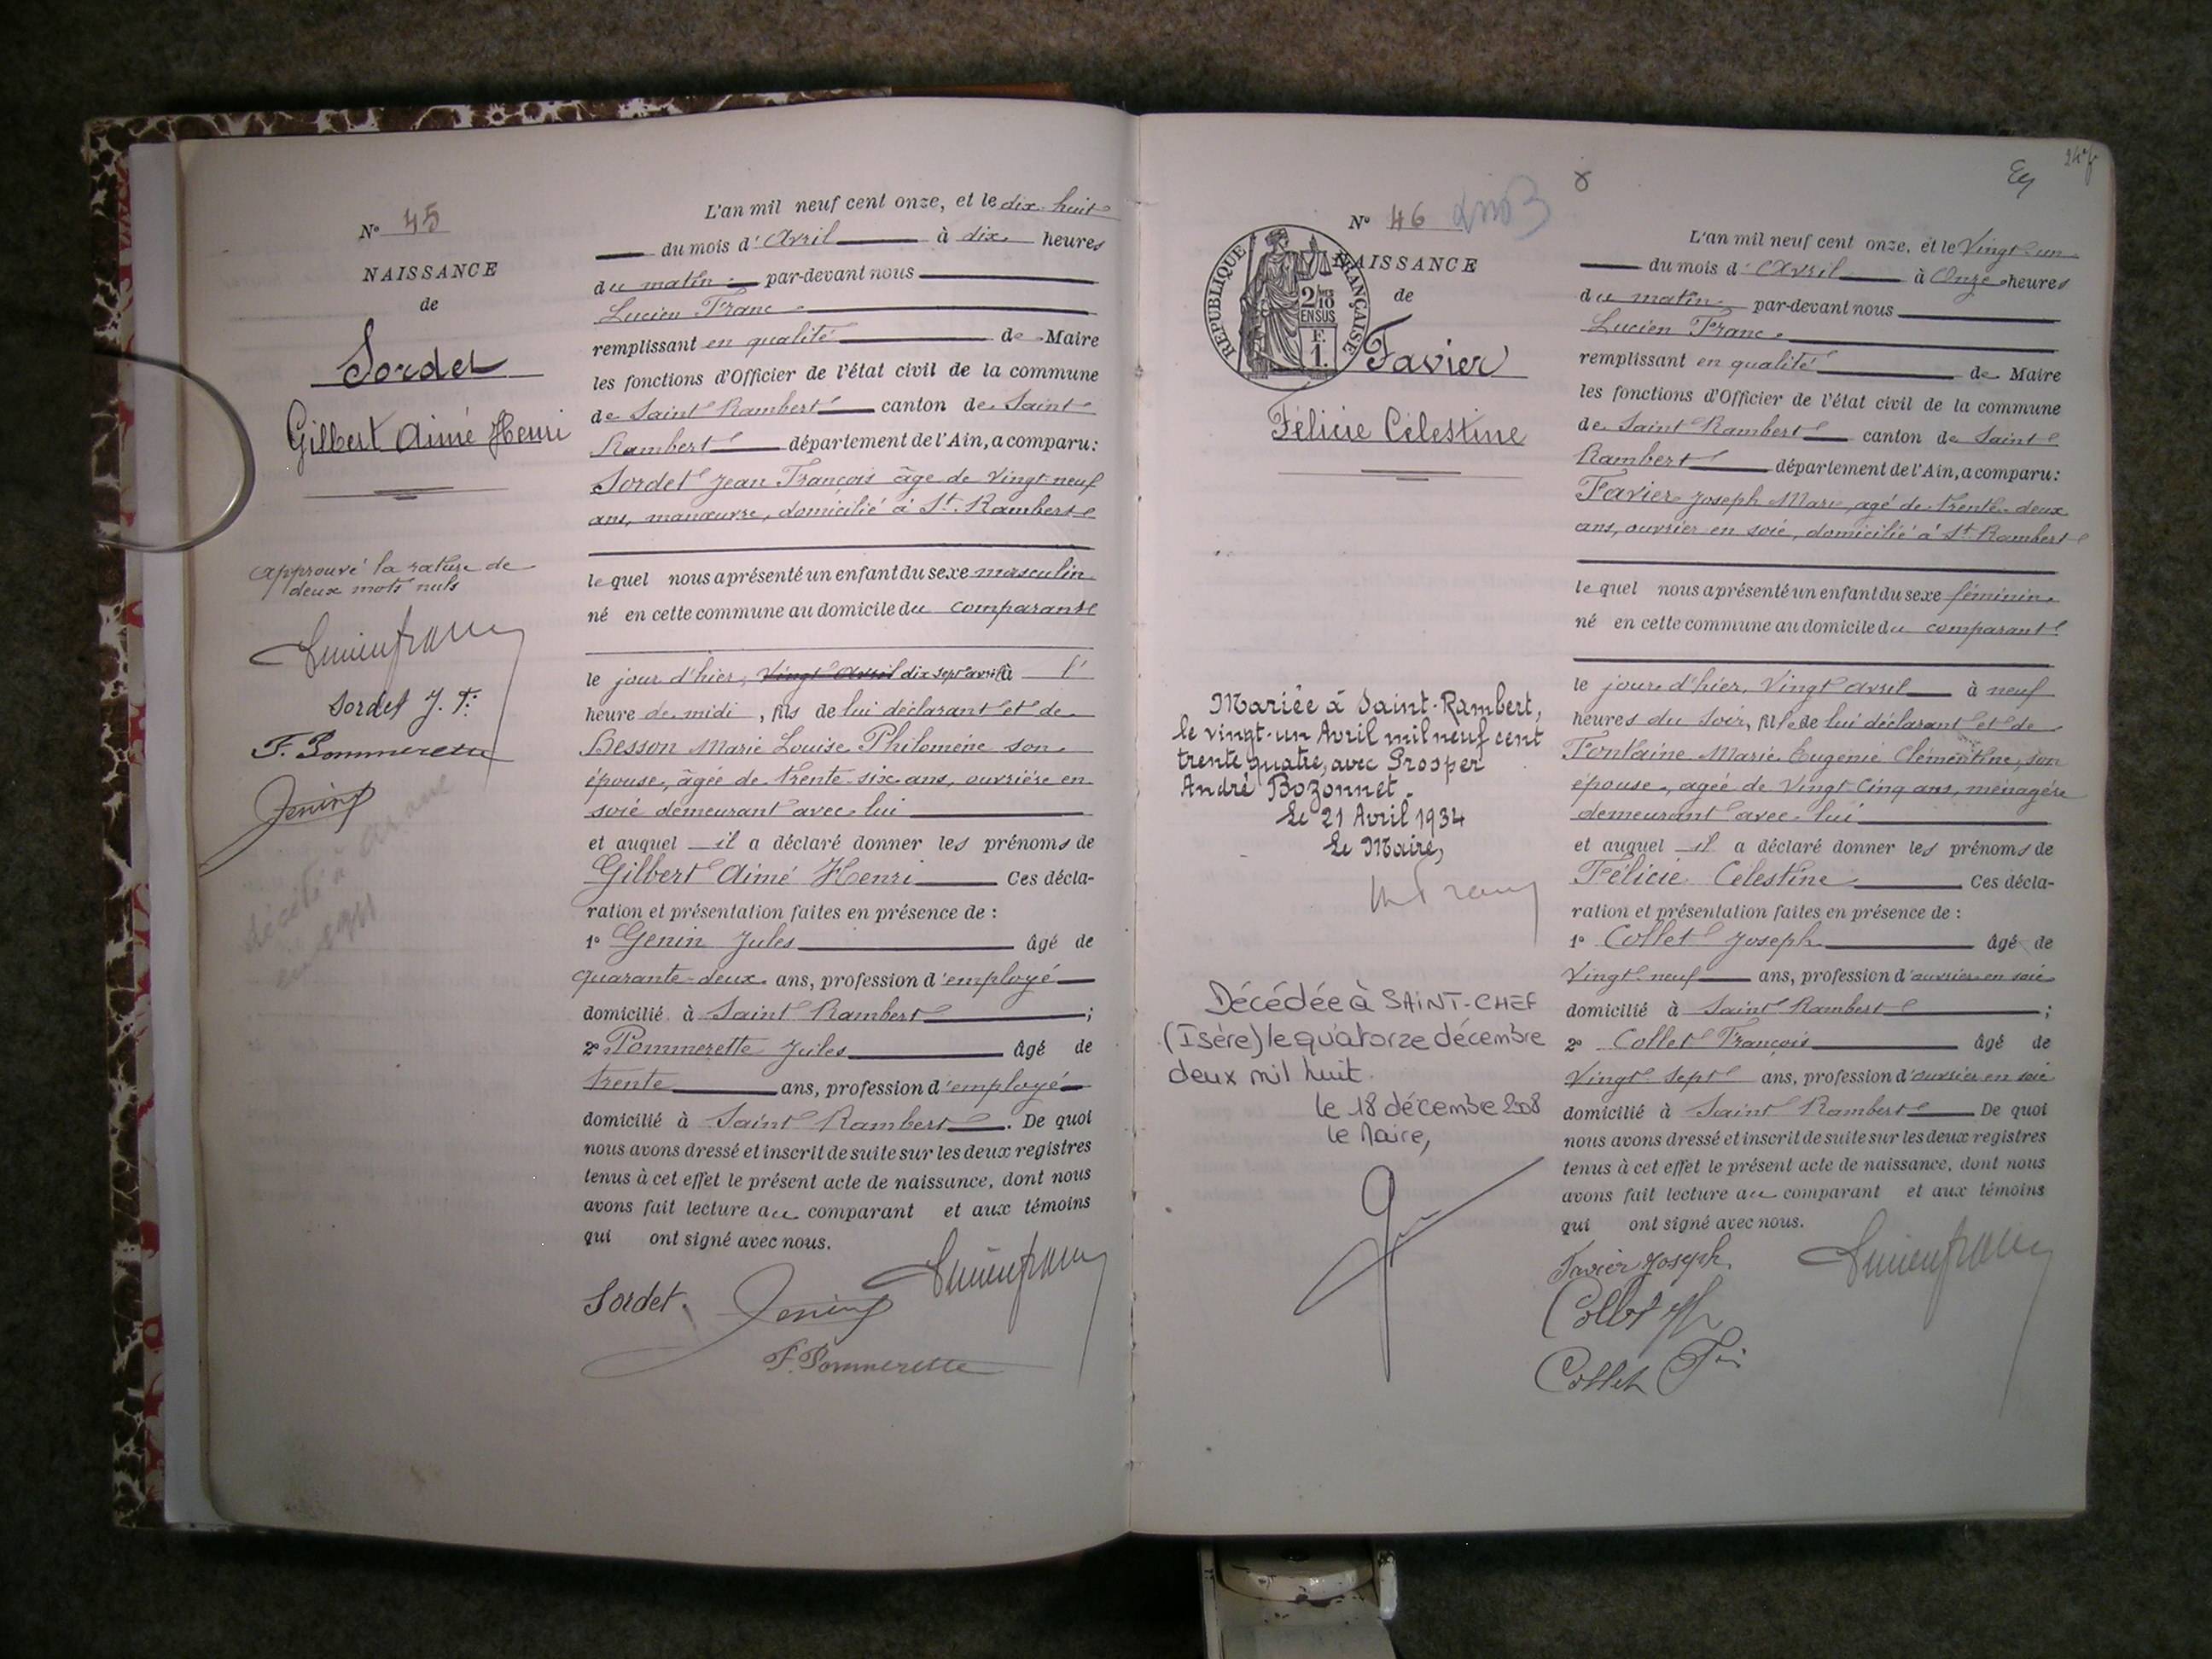 N° 45
NAISSANCE
de
Sordet
Gilbert Aimé Henri
approuvé la rature de
deux mots nuls
Sordet J. F.
F. Pommerette
Genin
décédé à
en 1911
L'an mil neuf cent onze, et le dix huit
du mois d'Avril à dix heures
du matin par-devant nous
Lucien Franc
remplissant en qualité de Maire
les fonctions d'Officier de l'état civil de la commune
de Saint Rambert canton de Saint
Rambert département de l'Ain, a comparu:
Sordet Jean François âge de vingt-neuf
ans, manœuvre, domicilié à St. Rambert
lequel nous a présenté un enfant du sexe masculin
né en cette commune au domicile du comparant
le jour d'hier, Vingt Avril dix sept avril à l'
heure de midi, fils de lui déclarant et de
Besson Marie Louise Philomène son
épouse, âgée de trente-six ans, ouvrière en
soie demeurant avec lui
et auquel il a déclaré donner les prénoms de
Gilbert Aimé Henri Ces décla-
ration et présentation faites en présence de :
1° Genin Jules âgé de
quarante-deux ans, profession d'employé
domicilié à Saint Rambert ;
2° Pommerette Jules âgé de
trente ans, profession d'employé
domicilié à Saint Rambert. De quoi
nous avons dressé et inscrit de suite sur les deux registres
tenus à cet effet le présent acte de naissance, dont nous
avons fait lecture au comparant et aux témoins
qui ont signé avec nous.
Sordet Genin Lucien franc
F. Pommerette
N° 46
NAISSANCE
de
RÉPUBLIQUE FRANÇAISE
2/10
EN SUS
F.
1.
Favier
Félicie Célestine
Mariée à Saint-Rambert,
le vingt-un Avril mil neuf cent
trente quatre, avec Prosper
André Bozonnet.
Le 21 Avril 1934
Le Maire,
Décédée à SAINT-CHEF
(Isère) le quatorze décembre
deux mil huit.
le 18 décembre 2008
le Maire,
L'an mil neuf cent onze, et le Vingt-un
du mois d'Avril à Onze heures
du matin par-devant nous
Lucien Franc
remplissant en qualité de Maire
les fonctions d'Officier de l'état civil de la commune
de Saint Rambert canton de Saint
Rambert département de l'Ain, a comparu:
Favier Joseph Marie, agé de trente-deux
ans, ouvrier en soie, domicilié à St Rambert
lequel nous a présenté un enfant du sexe féminin
né en cette commune au domicile du comparant
le jour d'hier, Vingt avril à neuf
heures du soir, fille de lui déclarant et de
Fontaine Marie Eugénie Clémentine, son
épouse, agée de Vingt Cinq ans, ménagère
demeurant avec lui
et auquel il a déclaré donner les prénoms de
Félicie Célestine Ces décla-
ration et présentation faites en présence de :
1° Collet Joseph âgé de
Vingt-neuf ans, profession d'ouvrier en soie
domicilié à Saint Rambert ;
2° Collet François âgé de
Vingt Sept ans, profession d'ouvrier en soie
domicilié à Saint Rambert De quoi
nous avons dressé et inscrit de suite sur les deux registres
tenus à cet effet le présent acte de naissance, dont nous
avons fait lecture au comparant et aux témoins
qui ont signé avec nous.
Favier Joseph Lucien franc
Collet
Collet